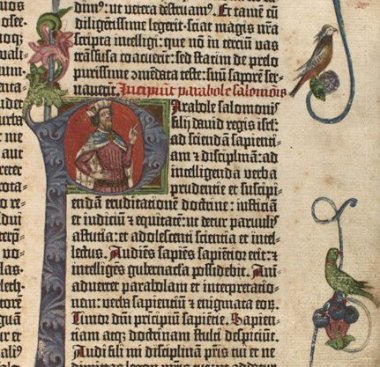 dim⁹: ut vetera destruam⁹. Et tamē cū
diligētissime legerit· sciat magis nr̄a
scripta intelligi: que nō in terciū vas
trāsfusa coacuerit: sed statim de prelo
purissime ↄmēdata teste: suū saporē ser-
vaverit. Incipiūt parabole salomōis
Parabole salomonis
filij david regis isrl̄:
ad sciēdā sapienti-
am ⁊ disciplinā: ad
intelligenda verba
prudentie et suscipi-
endā eruditationē doctrine: iusticiā
et iudiciū ⁊ equitatē: ut detur parvulis
astutia: et adolescenti scientia et intel-
lectus. Audiēs sapiēs sapientior erit: ⁊
intelligēs gubernacla possidebit. Ani-
advertet parabolam et interpretatio-
nem: verba sapientiū ⁊ enigmata eoꝝ.
Timor dn̄i principiū sapiētie. Sapien-
tiam atqꝫ doctrinam stulti despiciūt.
Audi fili mi disciplinā pr̄is tui et ne